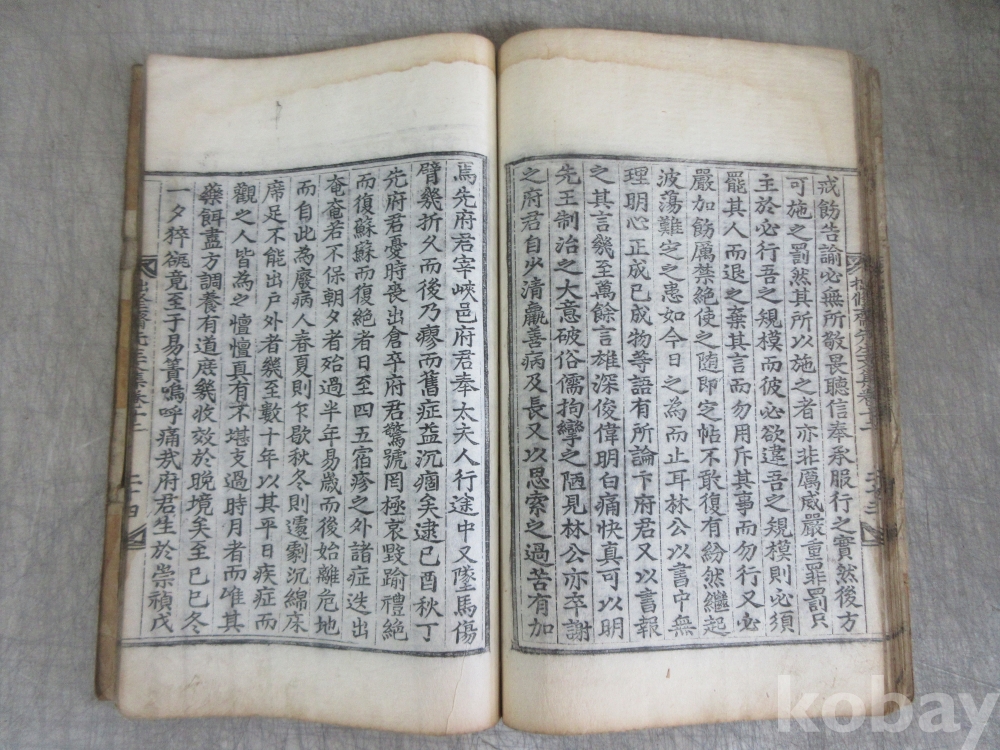 戒飭告諭必無所敬畏聽信奉承服行之實然後方
可施之罰然其所以施之者亦非厲威嚴重罪罰只
主於必行吾之規模而彼必欲違吾之規模則必須
罷其人而退之棄其言而勿用斥其事而勿行又必
嚴加飭厲禁絕使之隨即定帖不敢復有紛然繼起
波蕩難定之患如今日之為而止耳林公以書中無
理明心正成已成物等語有所論下府君又以書報
之其言幾至萬餘言雄深俊偉明白痛快真可以明
先王制治之大意破俗儒拘攣之陋見林公亦卒謝
之府君自少清羸善病及長又以思索之過苦有加
焉先府君宰峽邑府君奉太夫人行途中又墜馬傷
臂幾折久而後乃瘳而舊症益沉痼矣逮己酉秋丁
先府君憂時喪出倉卒府君驚號罔極哀毀踰禮絕
而復蘇蘇而復絕者日至四五宿疹之外諸症迭出
奄奄若不保朝夕者殆過半年易歲而後始離危地
而自此為廢病人春夏則乍歇秋冬則還劇沉綿床
席足不能出戶外者幾至數十年以其平日疾症而
觀之人皆為之懍懍真有不堪支過時月者而唯其
藥餌盡方調養有道庶幾收效於晚境矣至己巳冬
一夕猝㞃竟至于易簀嗚呼痛哉府君生於崇禎戊
二十四
kobay